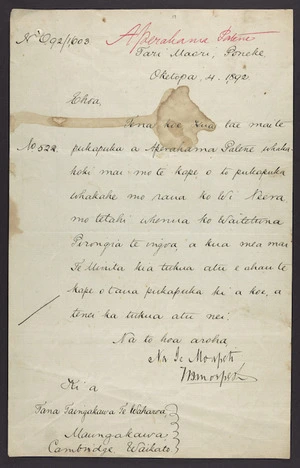 No O.92/1603
Aperahama Patene
Tari Maori, Poneke,
Oketopa, 4. 1892
Ehoa,
Tena koe kua tae mai te
No 522
pukapuka a Aperahama Patene whaka
hoki mai mo te kape o to pukapuka
whakahe mo raua ko Wi
mo tetahi whenua ko Waitetuna
Pirongia te ingoa, a kua mea mai
Te Minita kia tukua atu e ahau te
kape o taua pukapuka ki a koe, a
tenei ka tukua atu nei.
Na to hoa aroha,
Na Te Morpeti
Ki a
Tana Taingakawa Te Waharoa
Maungakawa
Cambridge Waikato